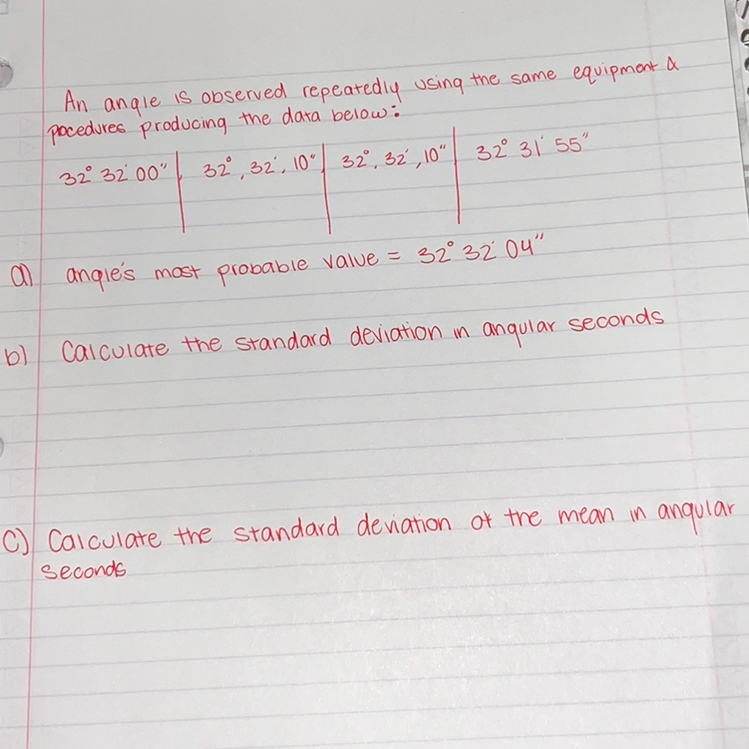 An angle is observed repeatedly using the same equipment &
pocedures producing the data below:
32° 32' 00" | 32°, 32', 10" | 32°, 32', 10" | 32° 31' 55"
a) angle's most probable value = 32° 32' 04"
b) Calculate the standard deviation in angular seconds
c) Calculate the standard deviation of the mean in angular
seconds